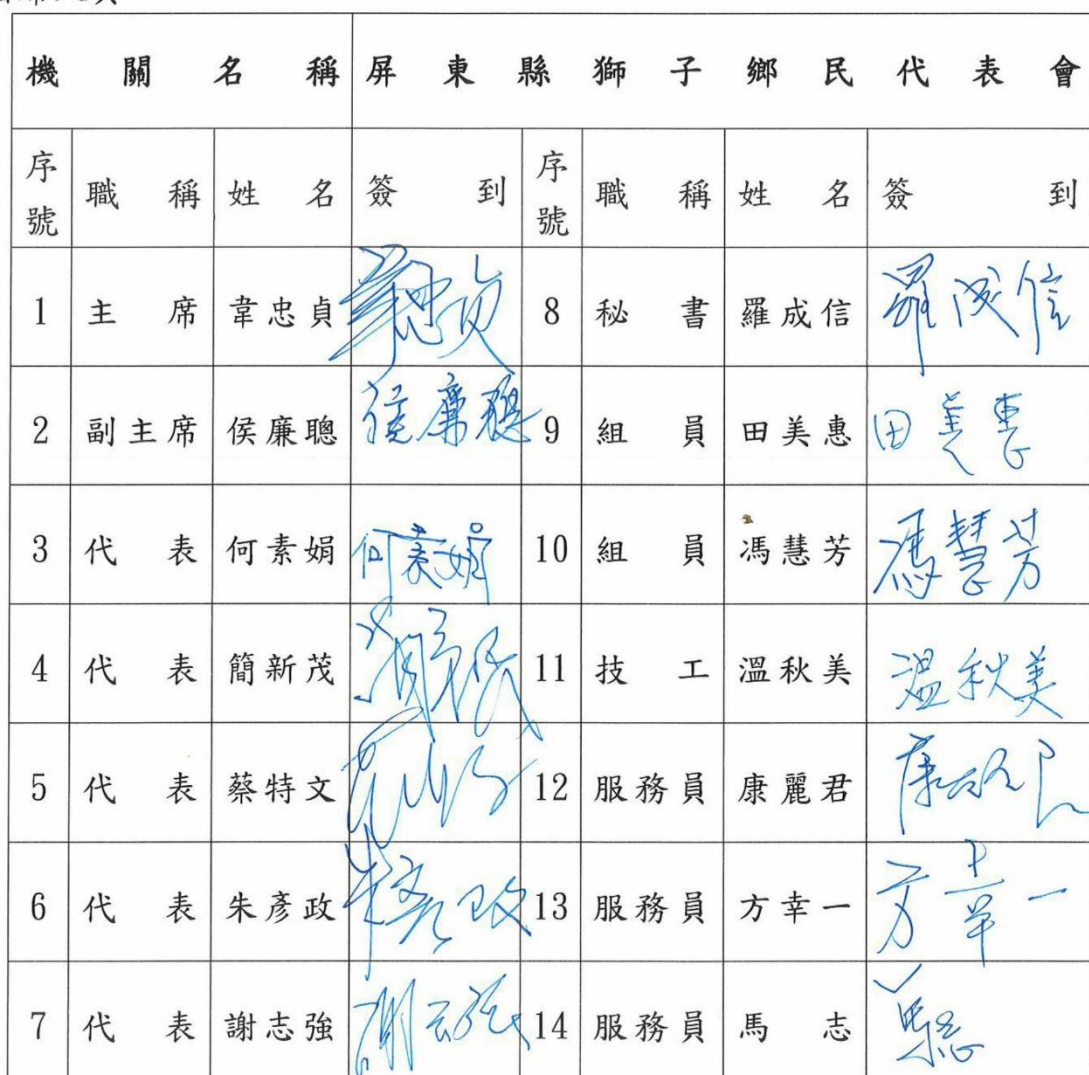 機關名稱 屏東縣獅子鄉民代表會
序號 職稱 姓名 簽到 序號 職稱 姓名 簽到
1 主席 韋忠貞 8 秘書 羅成信 羅成信
2 副主席 侯廉聰 侯廉聰 9 組員 田美惠 田美惠
3 代表 何素娟 何素娟 10 組員 馮慧芳 馮慧芳
4 代表 簡新茂 11 技工 溫秋美 溫秋美
5 代表 蔡特文 12 服務員 康麗君
6 代表 朱彥政 朱彥政 13 服務員 方幸一 方幸一
7 代表 謝志強 14 服務員 馬志